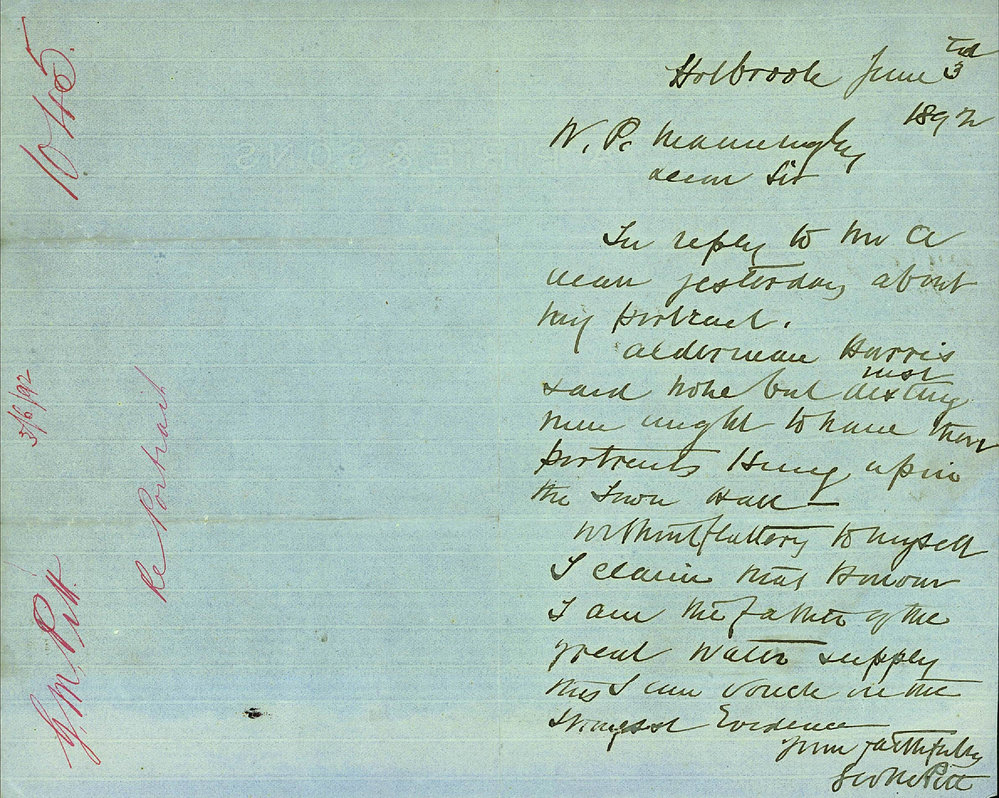 1045.
3/6/92
Re Portrait
G. M. Pitt.
Holbrook June 3rd
1892
W. P. Manning Esq
Dear Sir
In reply to Mr A
Dean yesterday about
my portrait.
Alderman Harris
said none but
men ought to have their
portraits Hung up in
the Town Hall —
without flattery to myself
I claim that Honour
I am the father of the
great Water supply
this I can vouch on the
strongest Evidence
Your faithfully
Geo M Pitt